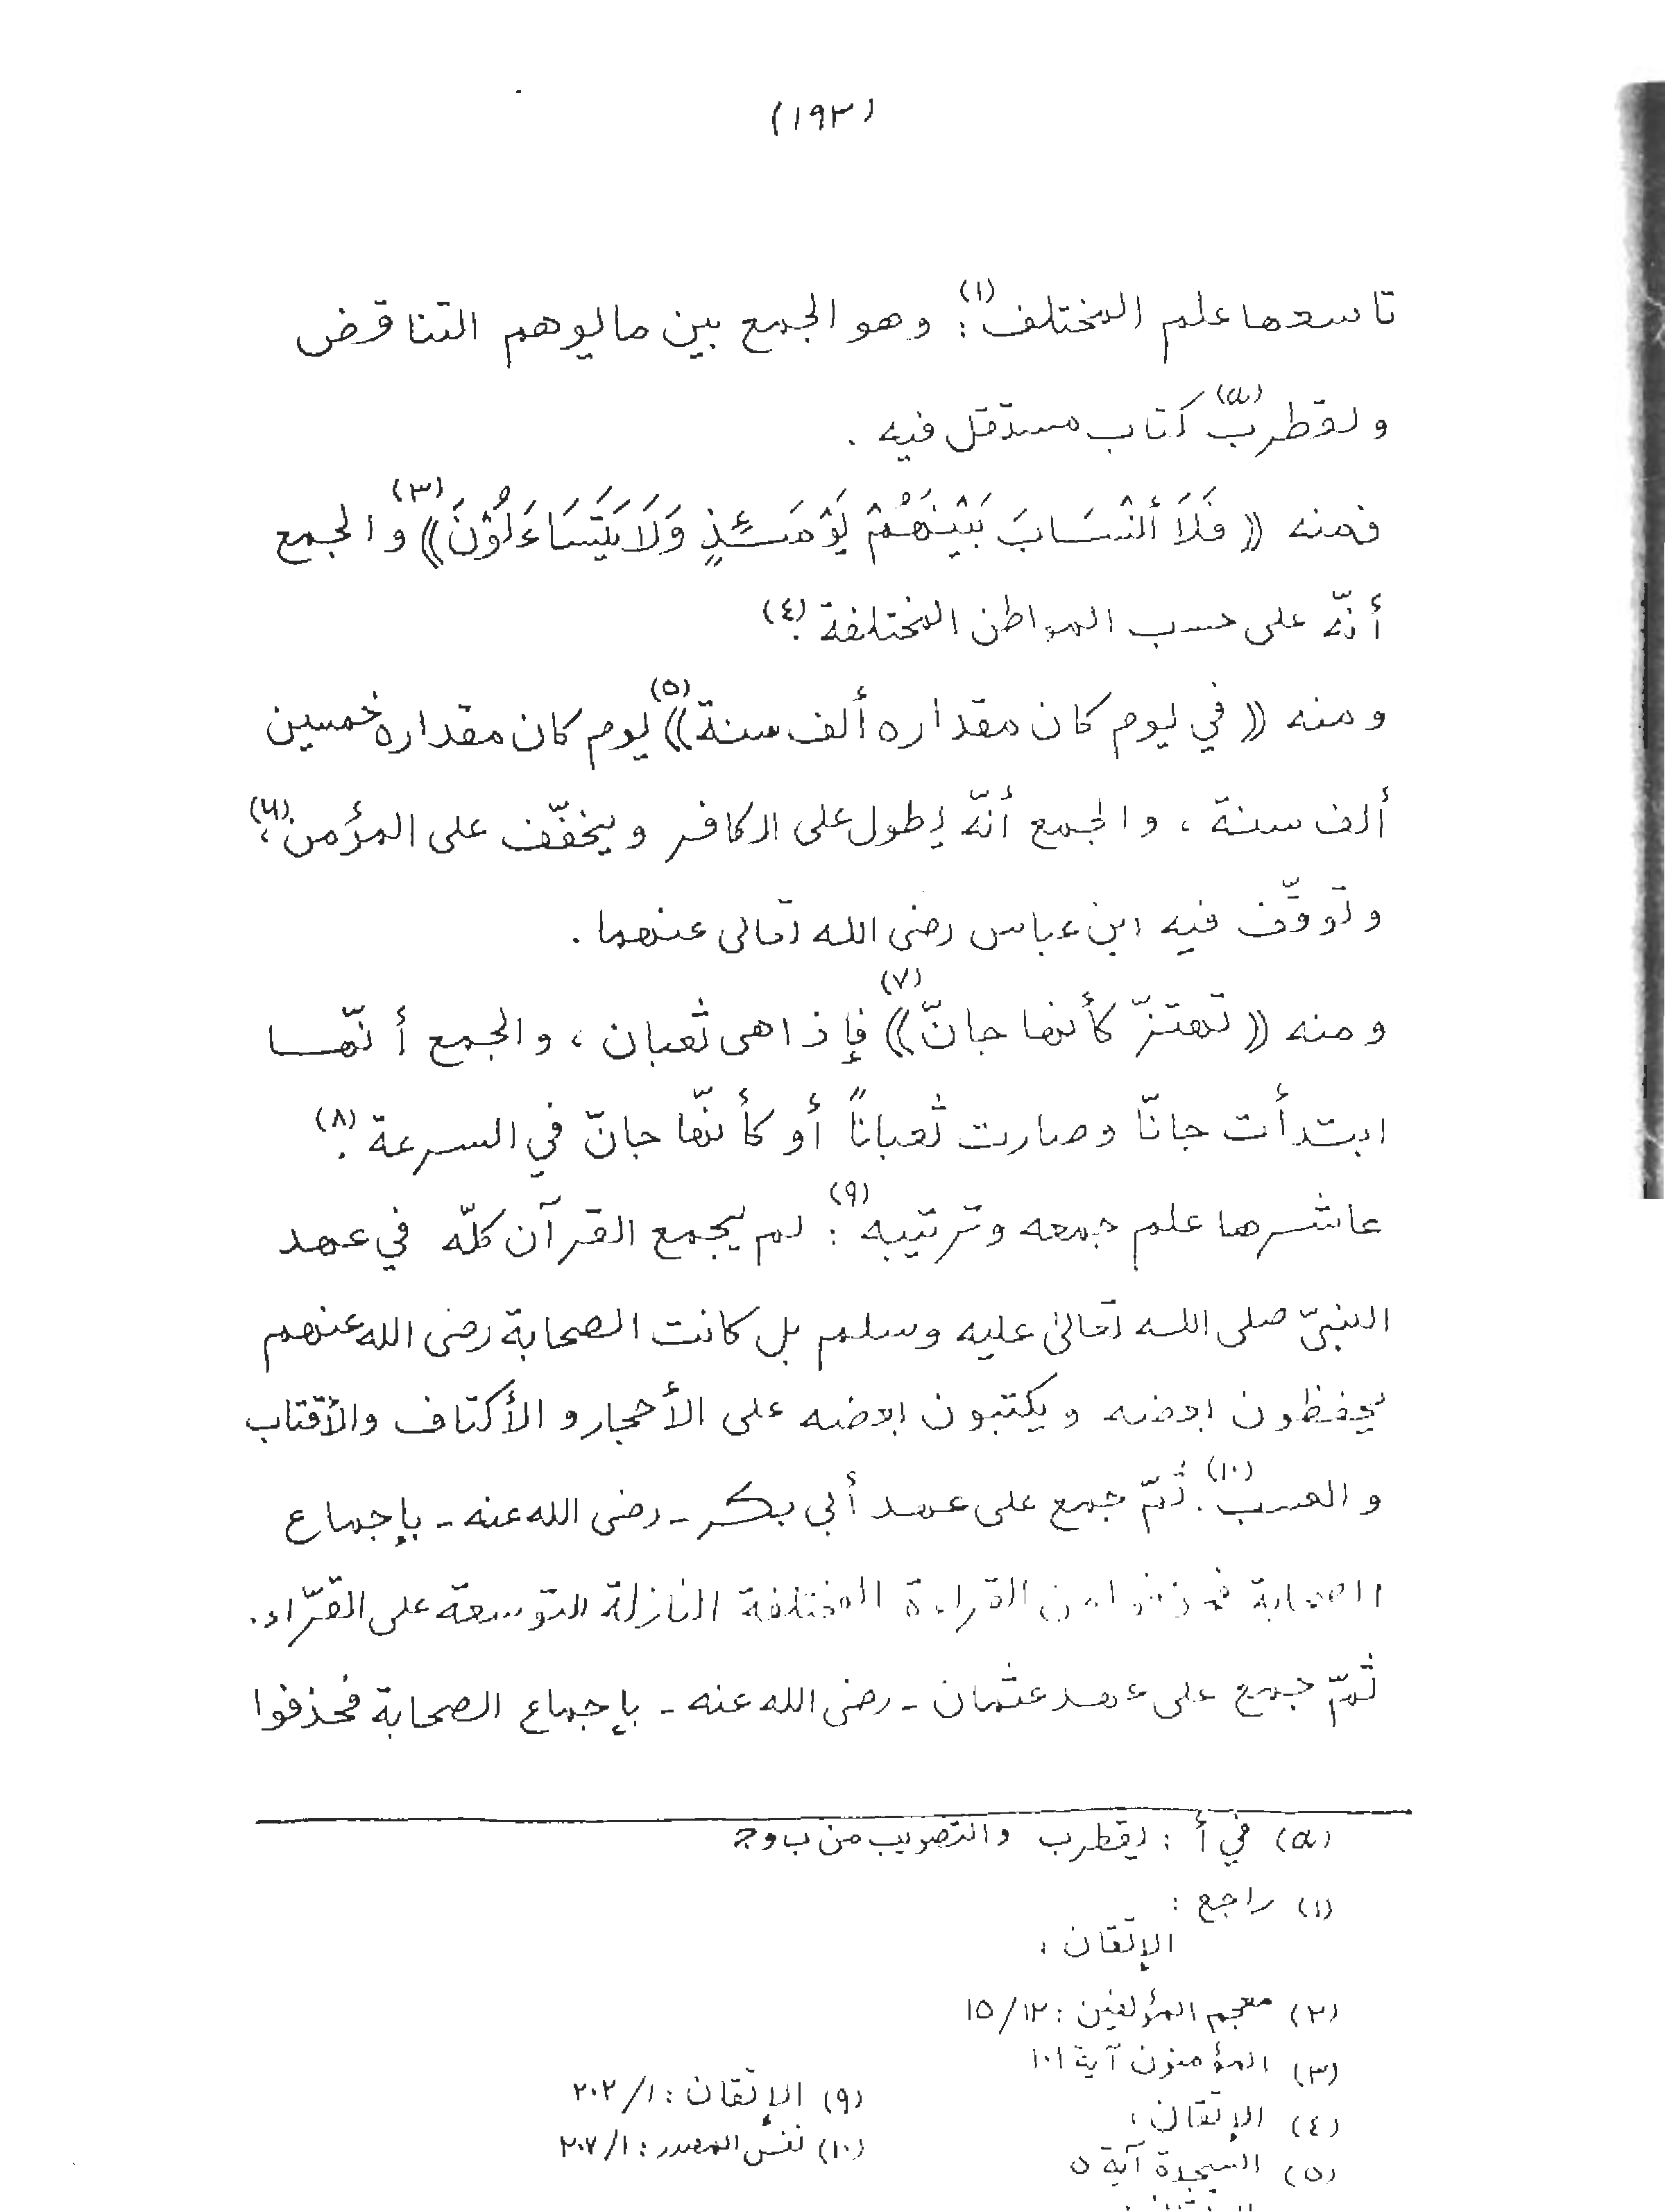 (١٩٢)
تاسعها علم المختلف(١): وهو الجمع بين ما يوهم التناقض
ولقطرب(a) كتاب مستقل فيه .
فمنه ((فَلَا أَنْسَابَ بَيْنَهُمْ يَوْمَئِذٍ وَلَا يَتَسَاءَلُوْنَ))(٣) والجمع
أنّه على حسب المواطن المختلفة .(٤)
ومنه ((في يوم كان مقداره ألف سنة))(٥) يوم كان مقداره خمسين
ألف سنة ، والجمع أنّه يطول على الكافر ويخفّف على المؤمن ،(٦)
وتوقّف فيه ابن عباس رضى الله تعالى عنهما .
ومنه ((تهتزّ كأنها جانّ))(٧) فإذا هى ثعبان ، والجمع أنّها
ابتدأت جانّا وصارت ثعباناً أو كأنّها جانّ في السرعة .(٨)
عاشرها علم جمعه وترتيبه(٩) : لم يجمع القرآن كلّه في عهد
النبىّ صلى الله تعالىٰ عليه وسلم بل كانت الصحابة رضى الله عنهم
يحفظون بعضه ويكتبون بعضه على الأحجار والأكتاف والأقتاب
والعسب(١٠). ثمّ جمع على عهد أبي بكر ـ رضى الله عنه ـ بإجماع
الصحابة فحذفوا من القراءة المختلفة النازلة للتوسعة على القرّاء .
ثمّ جمع على عهد عثمان ـ رضى الله عنه ـ بإجماع الصحابة فحذفوا
(a) في أ : يقطرب والتصويب من ب وج
(١) راجع :
الإتقان :
(٢) معجم المؤلفين : ١٥/١٢
(٣) المؤمنون آية ١٠١
(٤) الإتقان :
(٥) السجدة آية ٥
(٩) الإتقان : ٢٠٢/١
(١٠) نفس المصدر : ٢٠٧/١